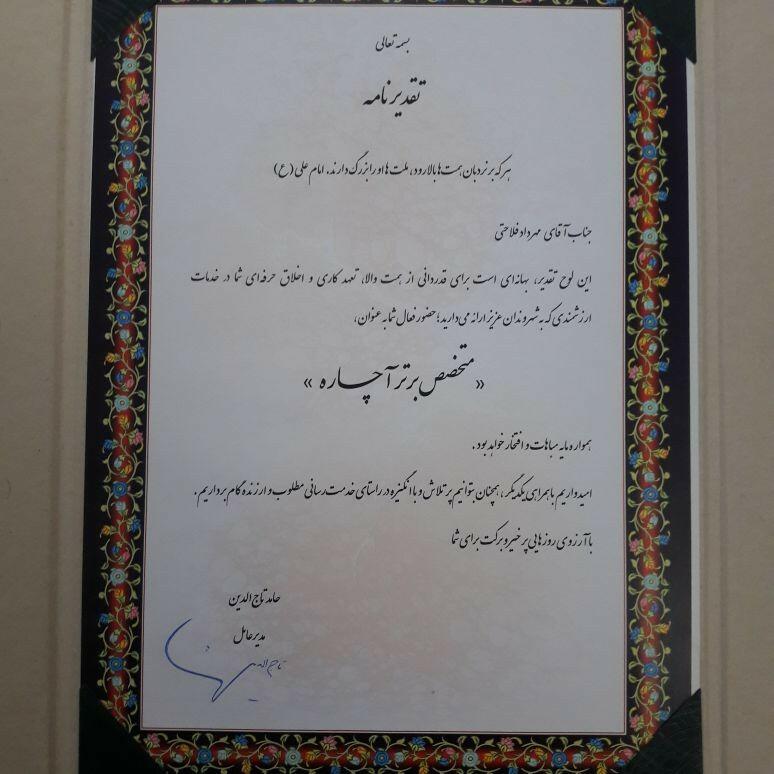 بسمه تعالی
تقدیرنامه
هر که بر نردبان همت ها بالا رود، ملت ها او را بزرگ دارند. امام علی (ع)
جناب آقای مهرداد فلاحتی
این لوح تقدیر، بهانه‌ای است برای قدردانی از همت والا، تعهد کاری و اخلاق حرفه‌ای شما در خدمات
ارزشمندی که به شهروندان عزیز ارائه می‌دارید؛ حضور فعال شما به عنوان،
« متخصص برتر آچاره »
همواره مایه مباهات و افتخار خواهد بود.
امیدواریم با همراهی یکدیگر، همچنان بتوانیم پر تلاش و با انگیزه در راستای خدمت رسانی مطلوب و ارزنده گام برداریم.
با آرزوی روزهایی پر خیر و برکت برای شما
حامد تاج الدین
مدیرعامل
تاج الدین